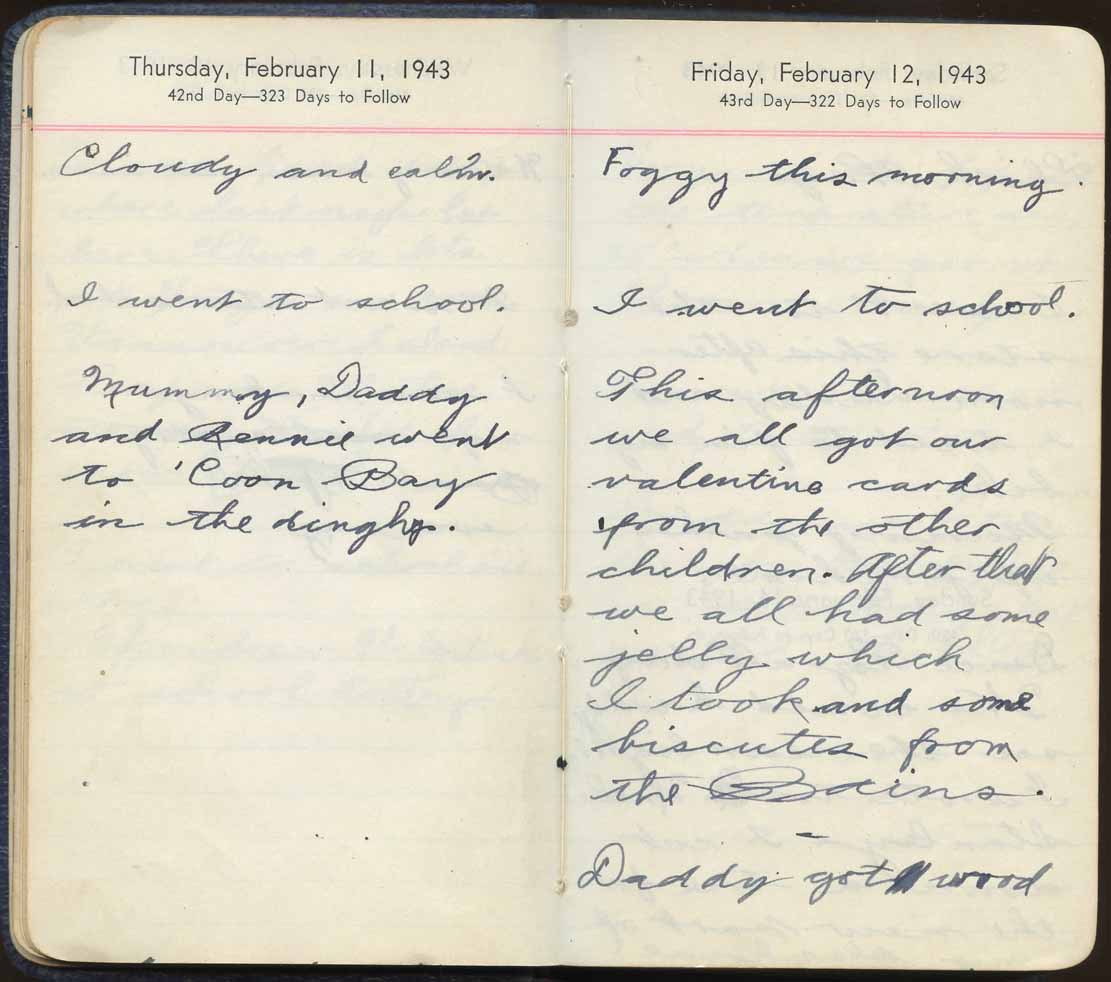 Thursday, February 11, 1943
42nd Day—323 Days to Follow
Cloudy and calm.
I went to school.
Mummy, Daddy
and Rennie went
to 'Coon Bay
in the dinghy.
Friday, February 12, 1943
43rd Day—322 Days to Follow
Foggy this morning.
I went to school.
This afternoon
we all got our
valentine cards
from the other
children. After that
we all had some
jelly which
I took and some
biscutes from
the Bains.
Daddy got wood